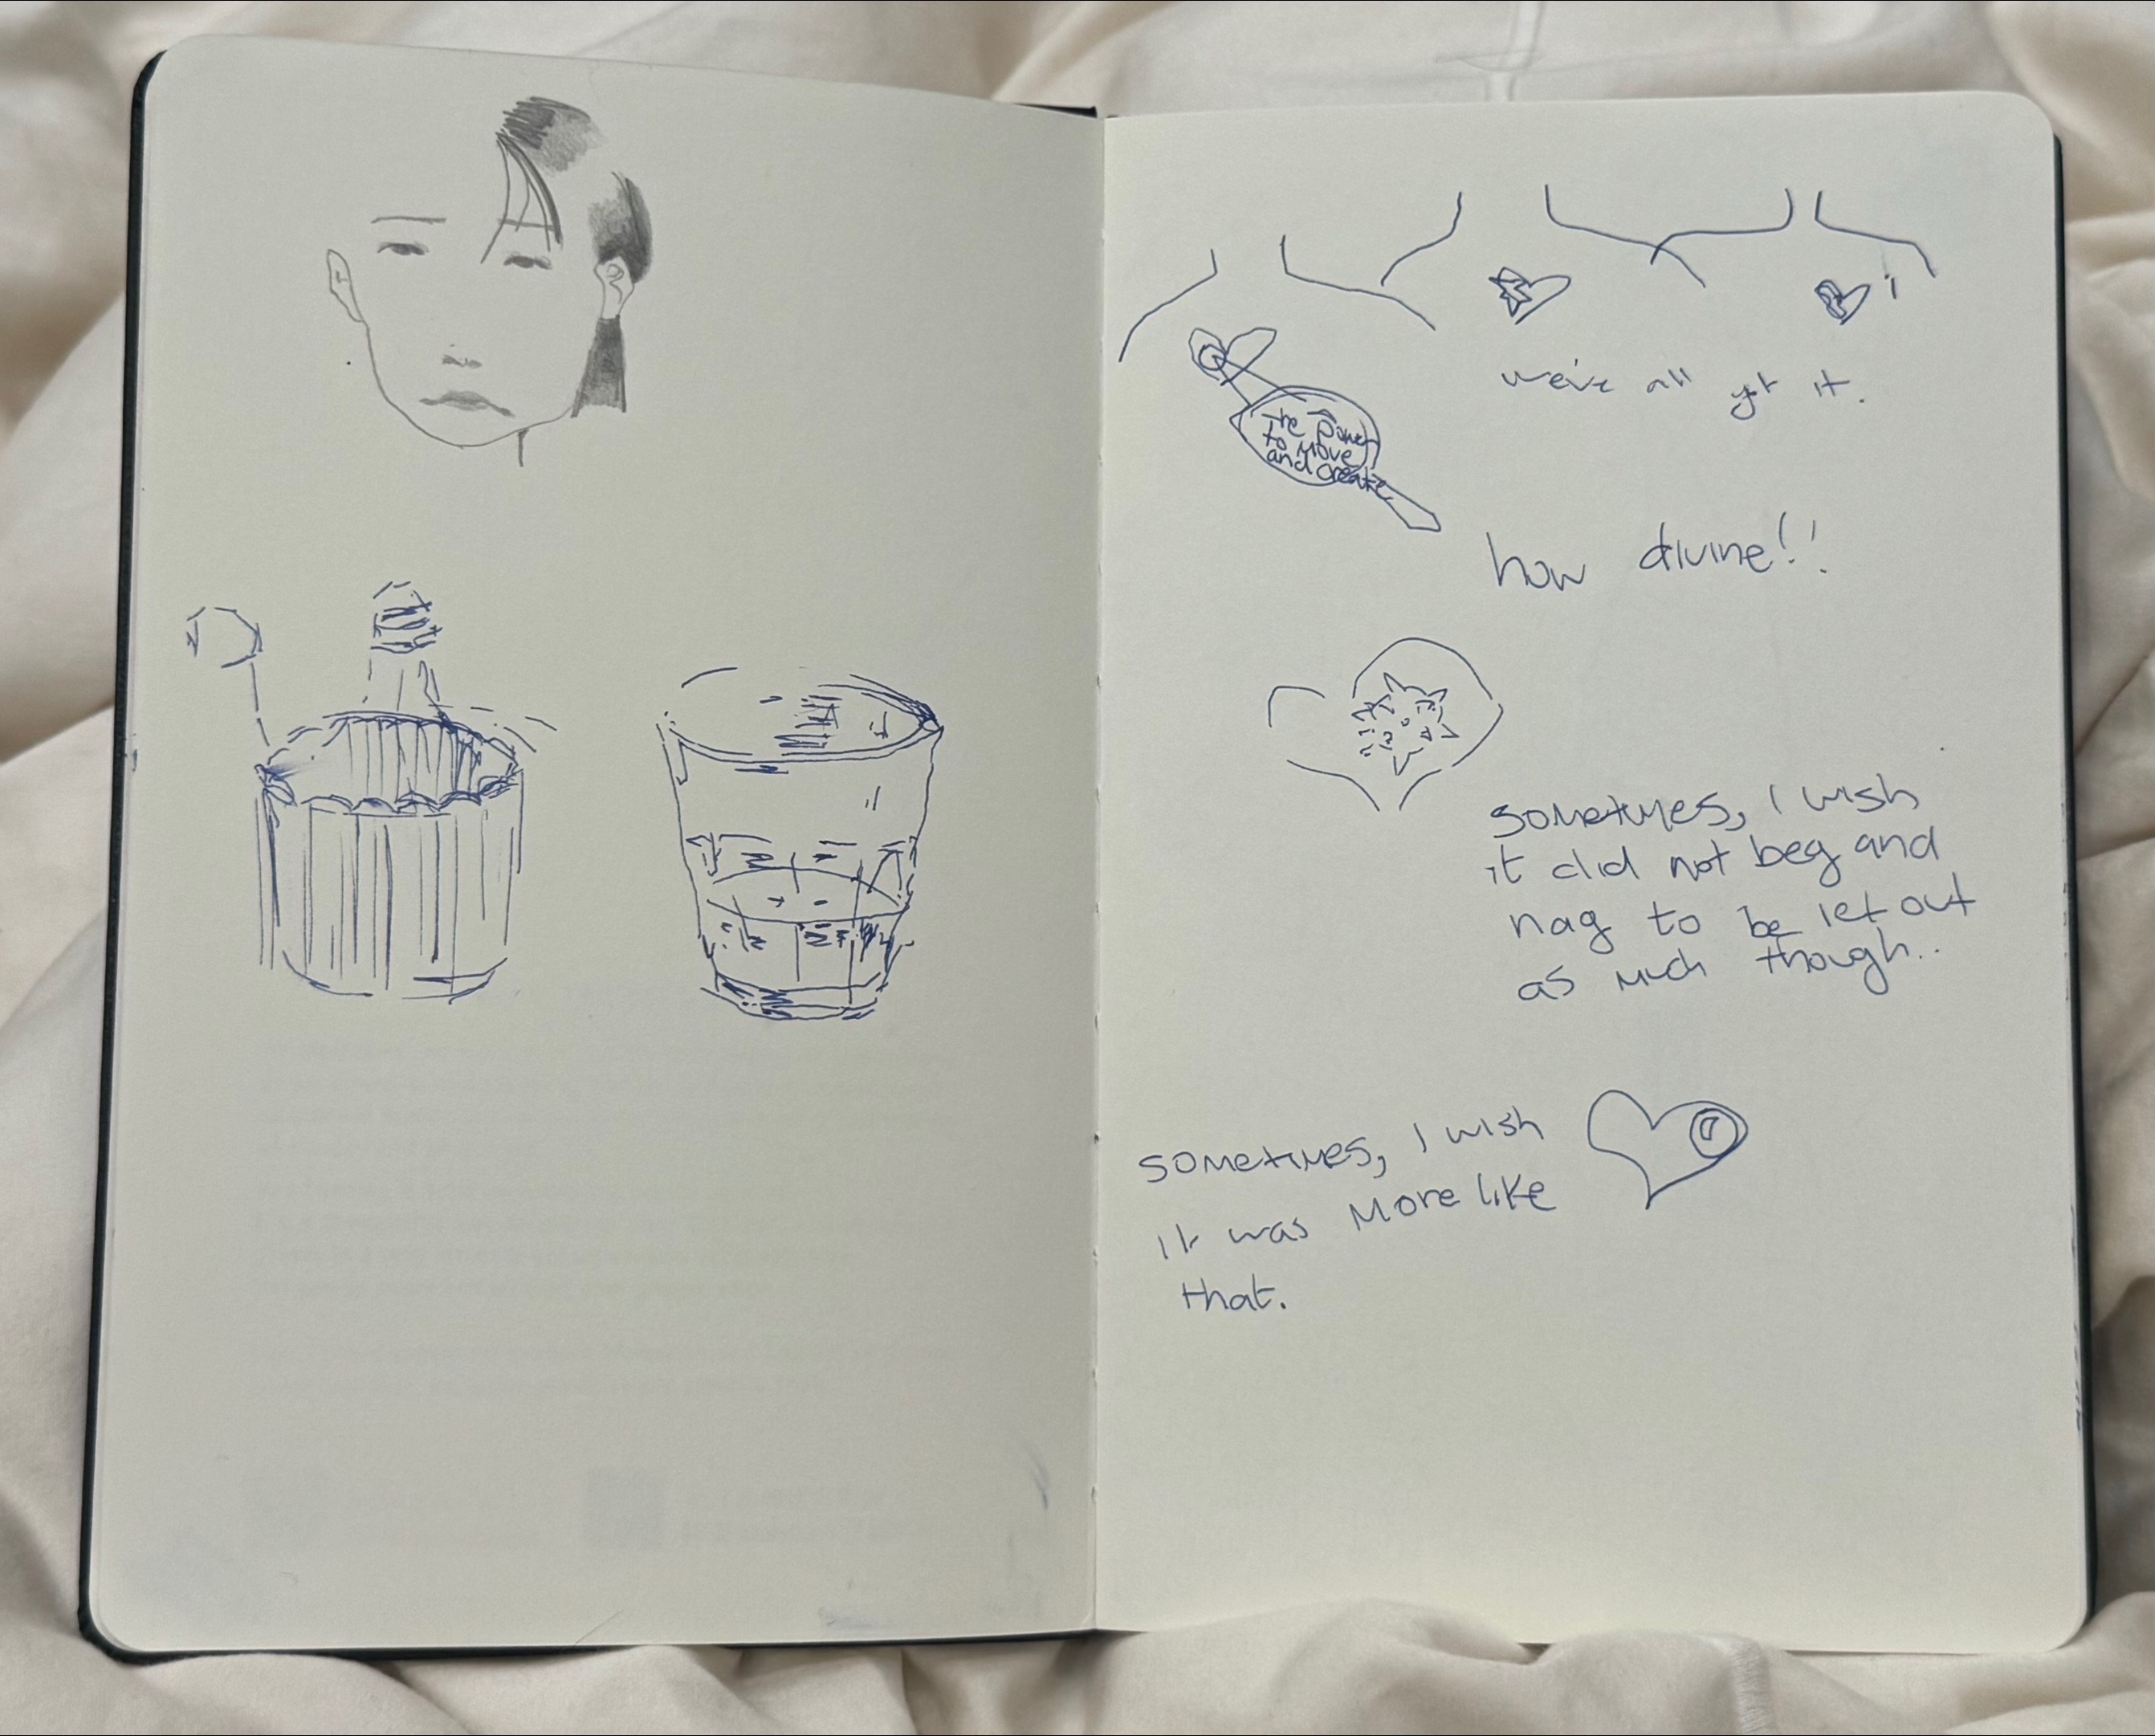 we've all got it.
The Power
to Move
and create
how divine!!
sometimes, I wish
it did not beg and
nag to be let out
as much though..
sometimes, I wish
it was more like
that.